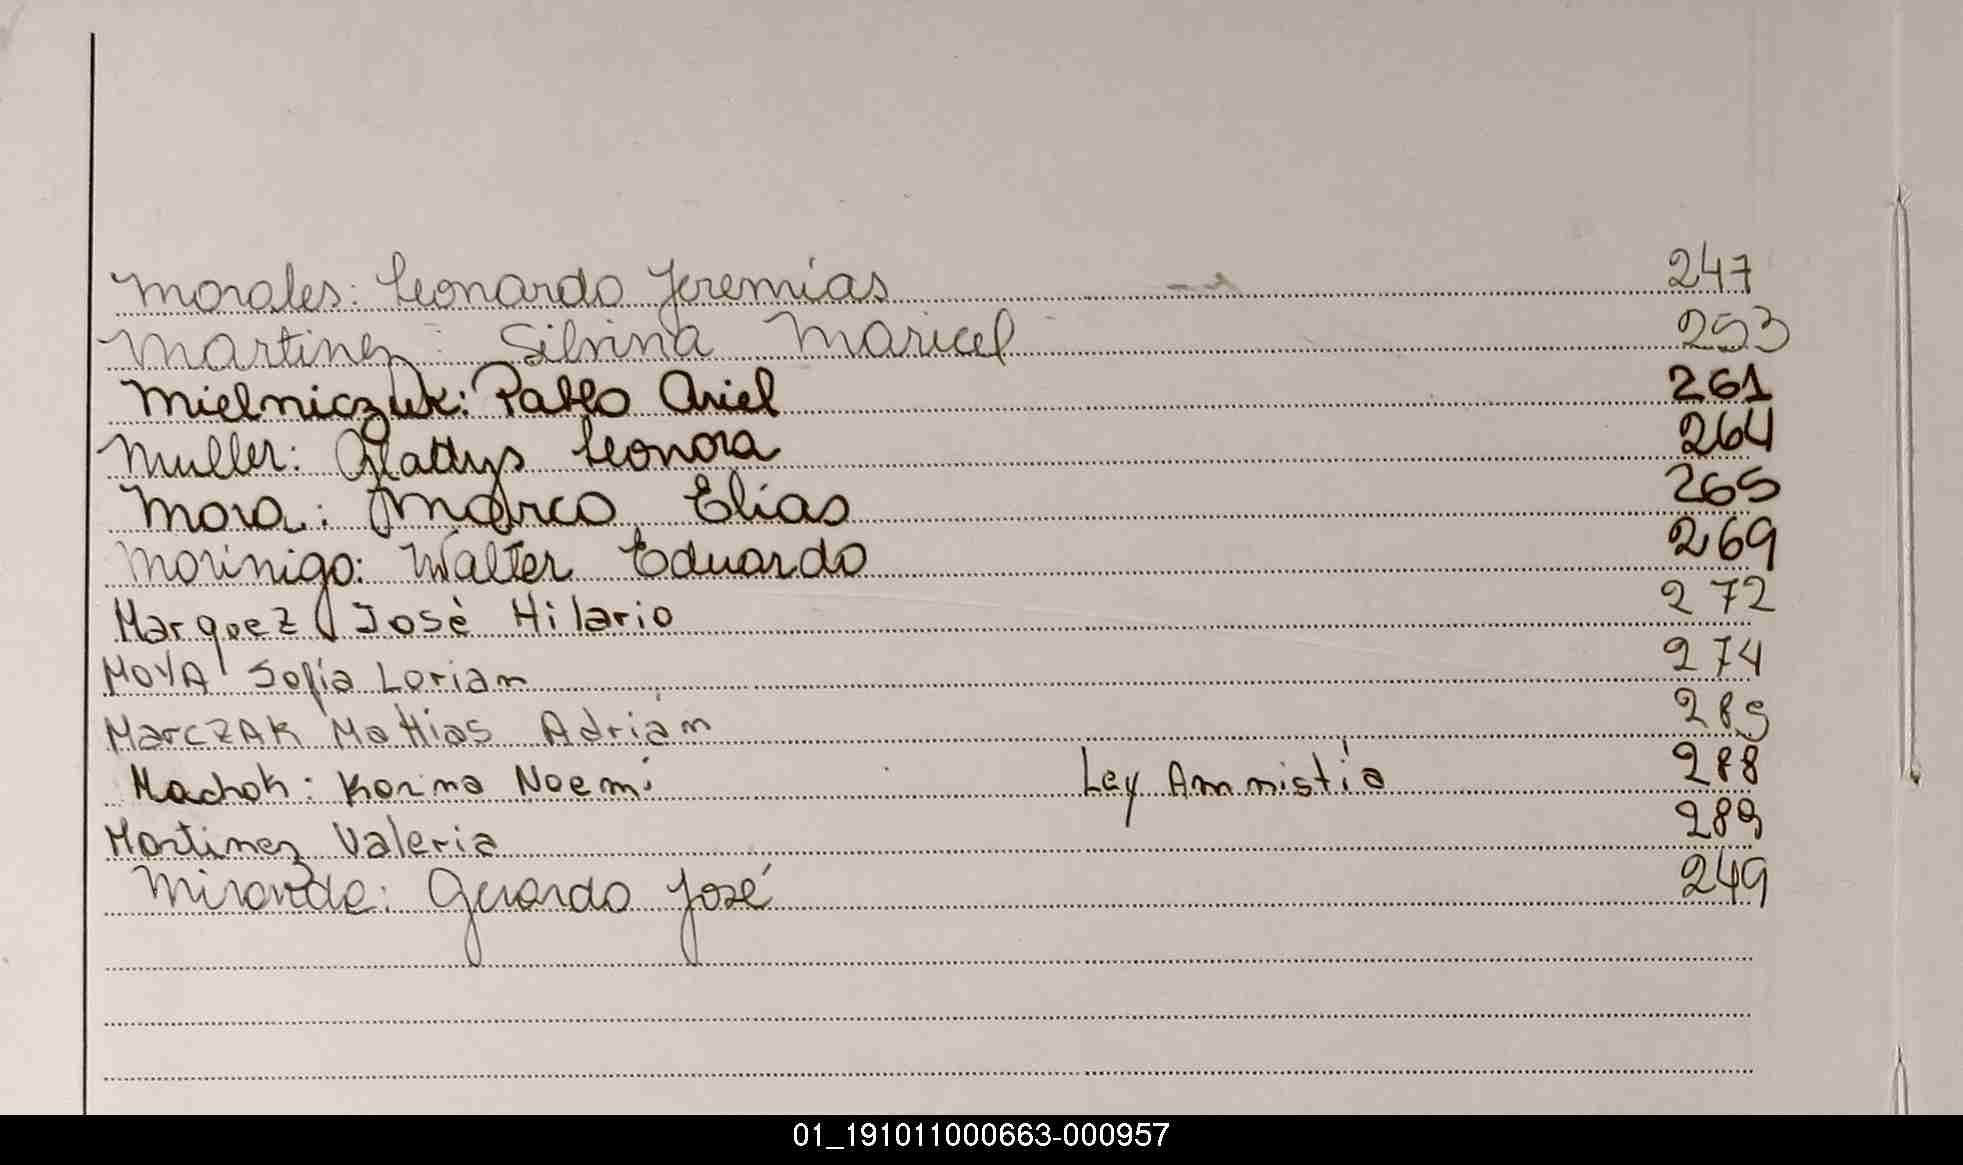 Morales: Leonardo Jeremías 247
Martinez: Silvina Maricel 253
Mielniczuk: Pablo Ariel 261
Muller: Gladys Leonora 264
Mora: Marco Elias 265
Morinigo: Walter Eduardo 269
Marquez José Hilario 272
MOYA Sofía Lorian 274
MarCZAK Mattias Adrián 285
Machok: Karina Noemí Ley Amnistía 288
Martinez Valeria 289
Miranda: Gerardo José 249
01_191011000663-000957